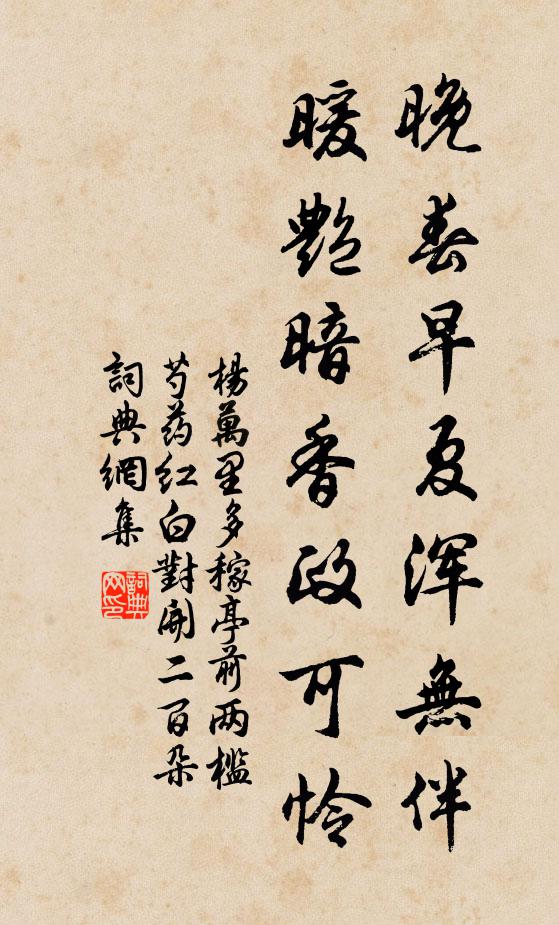 晚春早夏浑無伴
暖艷暗香政可怜
楊萬里多稼亭前两檻
芍药红白對開二百朵
詞典網集
詞典网印